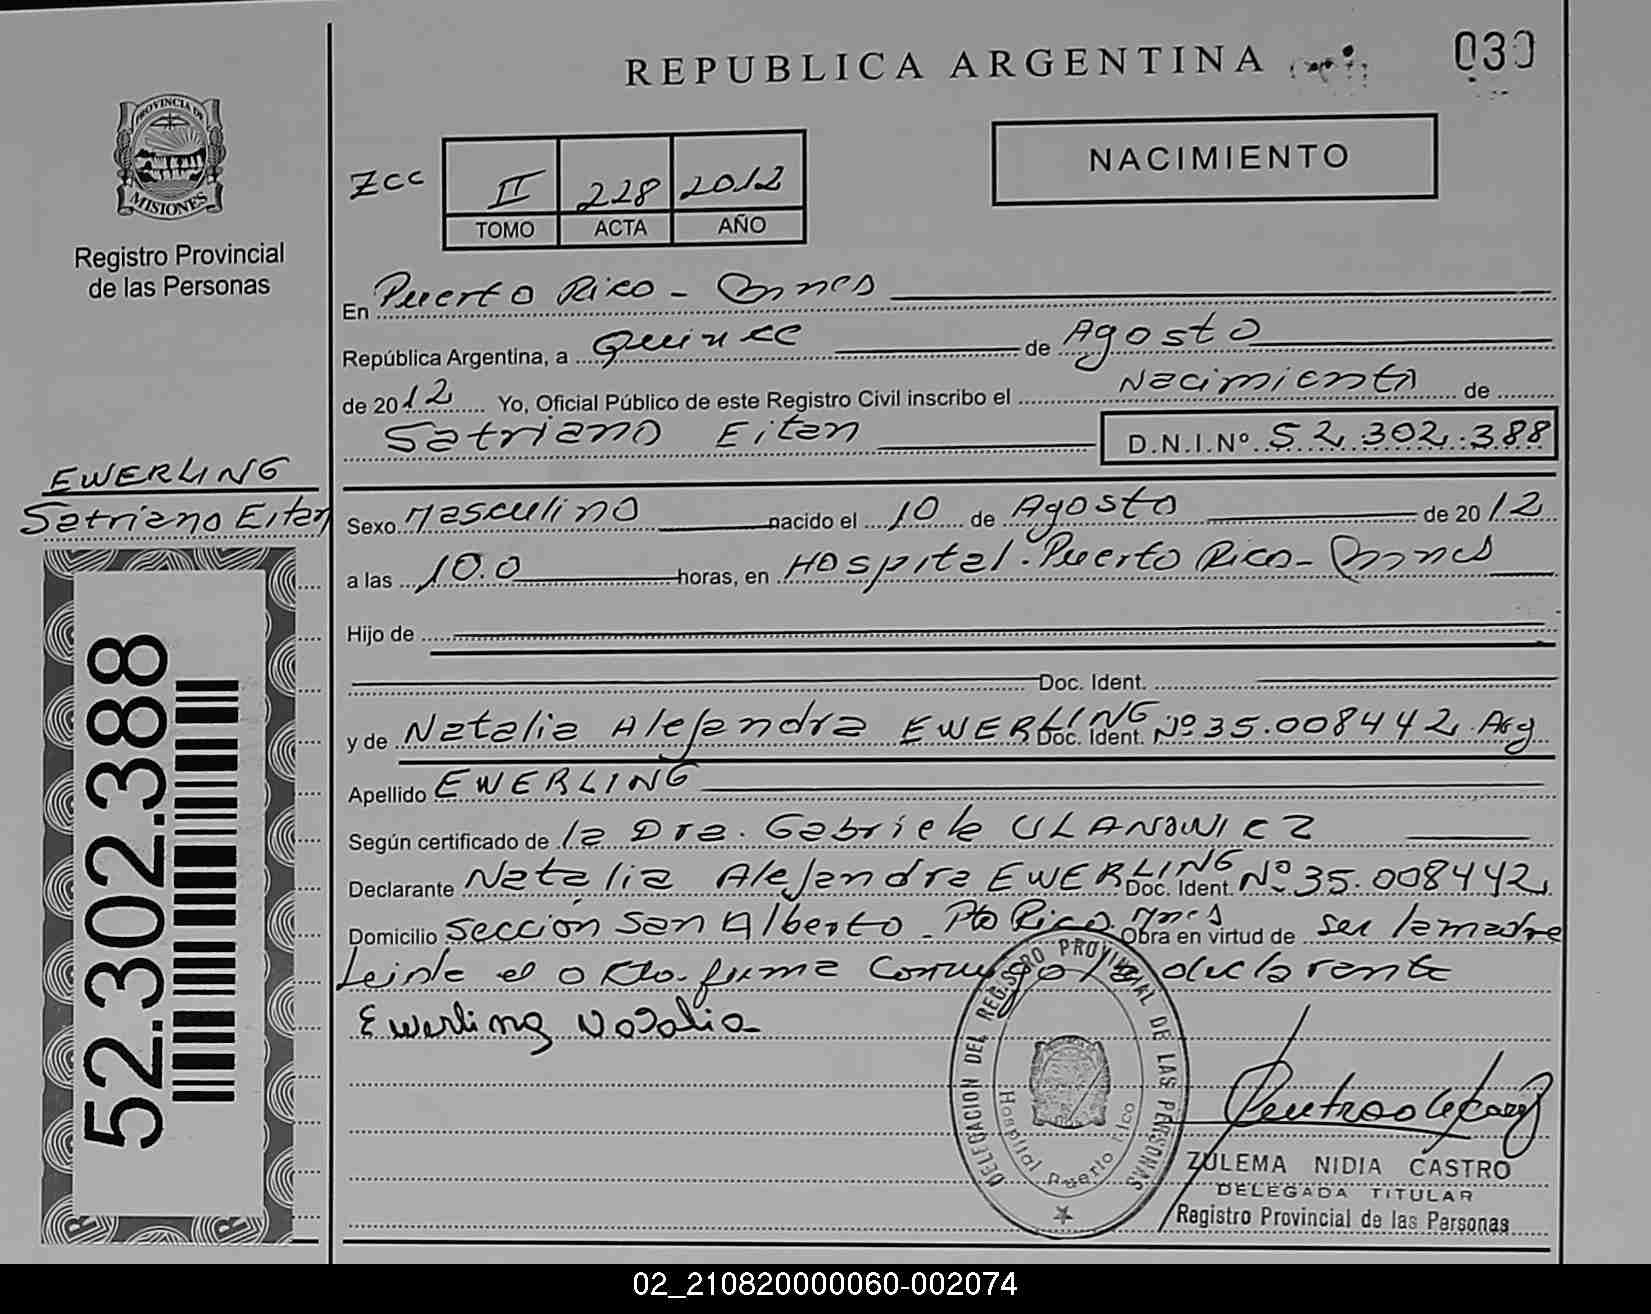 REPUBLICA ARGENTINA
030
PROVINCIA DE
MISIONES
Registro Provincial
de las Personas
NACIMIENTO
ZCC
II 228 2012
TOMO ACTA AÑO
En Puerto Rico - Mnes
República Argentina, a Quince de Agosto
de 2012 Yo, Oficial Público de este Registro Civil inscribo el Nacimiento de
Satriano Eitan D.N.I.Nº 52.302.388
EWERLING
Satriano Eitan
Sexo Masculino nacido el 10 de Agosto de 2012
a las 10.0 horas, en Hospital. Puerto Rico - Mnes
Hijo de
Doc. Ident.
y de Natalia Alejandra EWERLING Doc. Ident. Nº 35.008442. Arg
Apellido EWERLING
Según certificado de la Dra. Gabriela ULANOWICZ
Declarante Natalia Alejandra EWERLING Doc. Ident. Nº 35.008442.
Domicilio sección San Alberto - Pto Rico. Mnes Obra en virtud de ser la madre
Leida el firma conmigo la declarante
Ewerling Natalia
52.302.388
DELEGACION DEL REGISTRO PROVINCIAL DE LAS PERSONAS
Hospital Puerto Rico
ZULEMA NIDIA CASTRO
DELEGADA TITULAR
Registro Provincial de las Personas
02_210820000060-002074